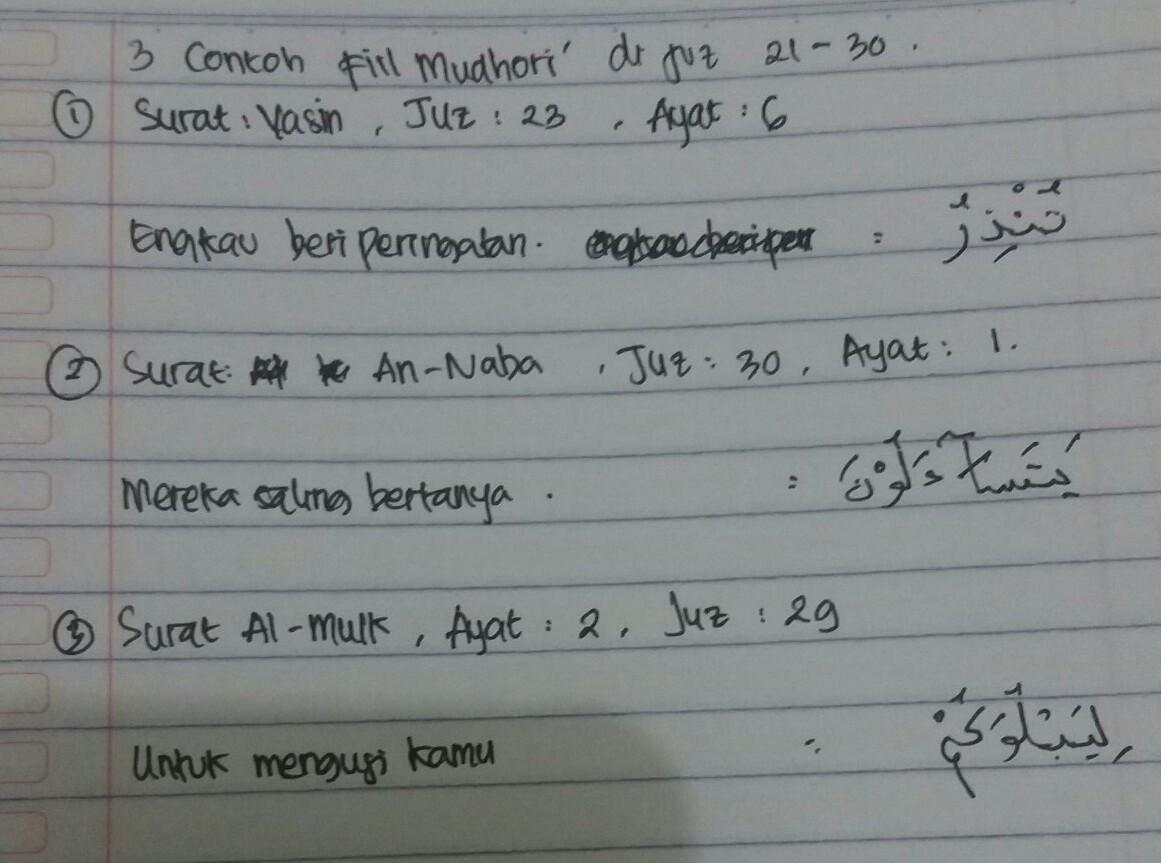 3 Contoh Fiil Mudhori' dr juz 21-30.
① Surat: Yasin, Juz: 23, Ayat: 6
Engkau beri peringatan. = تُنْذِرُ
② Surat: An-Naba, Juz: 30, Ayat: 1.
Mereka saling bertanya. = يَتَسَآءَلُوْنَ
③ Surat Al-Mulk, Ayat: 2, Juz: 29
Untuk menguji kamu = لِيَبْلُوَكُمْ